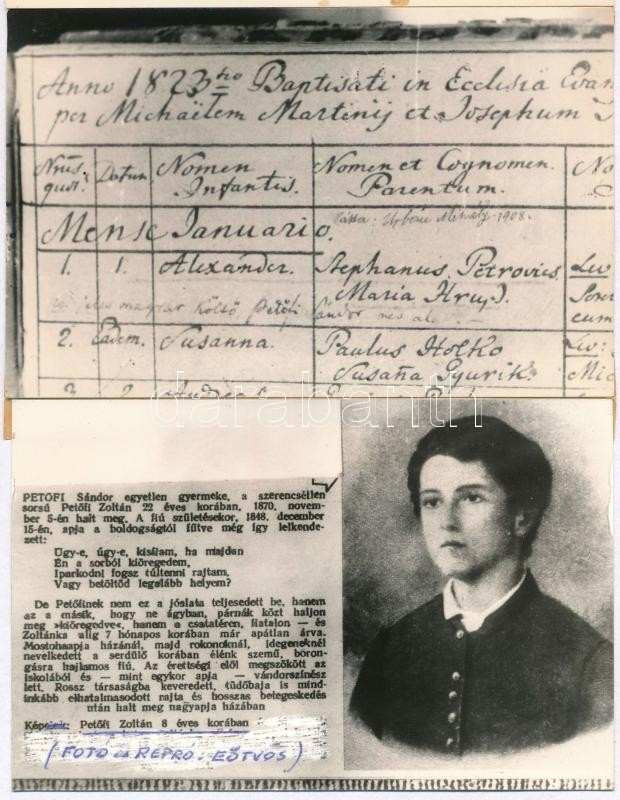 Anno 1823tio Baptisati in Ecclesia Evan
per Michaëlem Martiny et Josephum
Nrus Datum Nomen Nomen et Cognomen No
Infantis. Parentum.
Mense Januario. Mihály 1908.
1. 1. Alexander. Stephanus Petrovics Lu
Maria Hruz.
magyar költő Petőfi Sándor cum
2. Eadem. Susanna. Paulus Holko Lu:
Susaña Gyurik. Mic
3. 2.
darabanth
PETŐFI Sándor egyetlen gyermeke, a szerencsétlen
sorsú Petőfi Zoltán 22 éves korában, 1870. novem-
ber 5-én halt meg. A fiú születésekor, 1848. december
15-én, apja a boldogságtól fűtve még így lelkende-
zett:
Ugy-e, úgy-e, kisfiam, ha majdan
Én a sorból kiöregedem,
Iparkodni fogsz túltenni rajtam,
Vagy betöltöd legalább helyem?
De Petőfinek nem ez a jóslata teljesedett be, hanem
az a másik, hogy ne ágyban, párnák közt haljon
meg »kiöregedve«, hanem a csatatéren, fiatalon — és
Zoltánka alig 7 hónapos korában már apátlan árva.
Mostohaapja házánál, majd rokonoknál, idegeneknél
nevelkedett a serdülő korában élénk szemű, boron-
gásra hajlamos fiú. Az érettségi elől megszökött az
iskolából és — mint egykor apja — vándorszínész
lett. Rossz társaságba keveredett, tüdőbaja is mind-
inkább elhatalmasodott rajta és hosszas betegeskedés
után halt meg nagyapja házában
Képeink: Petőfi Zoltán 8 éves korában
(FOTO és REPRÓ: EÖTVÖS)